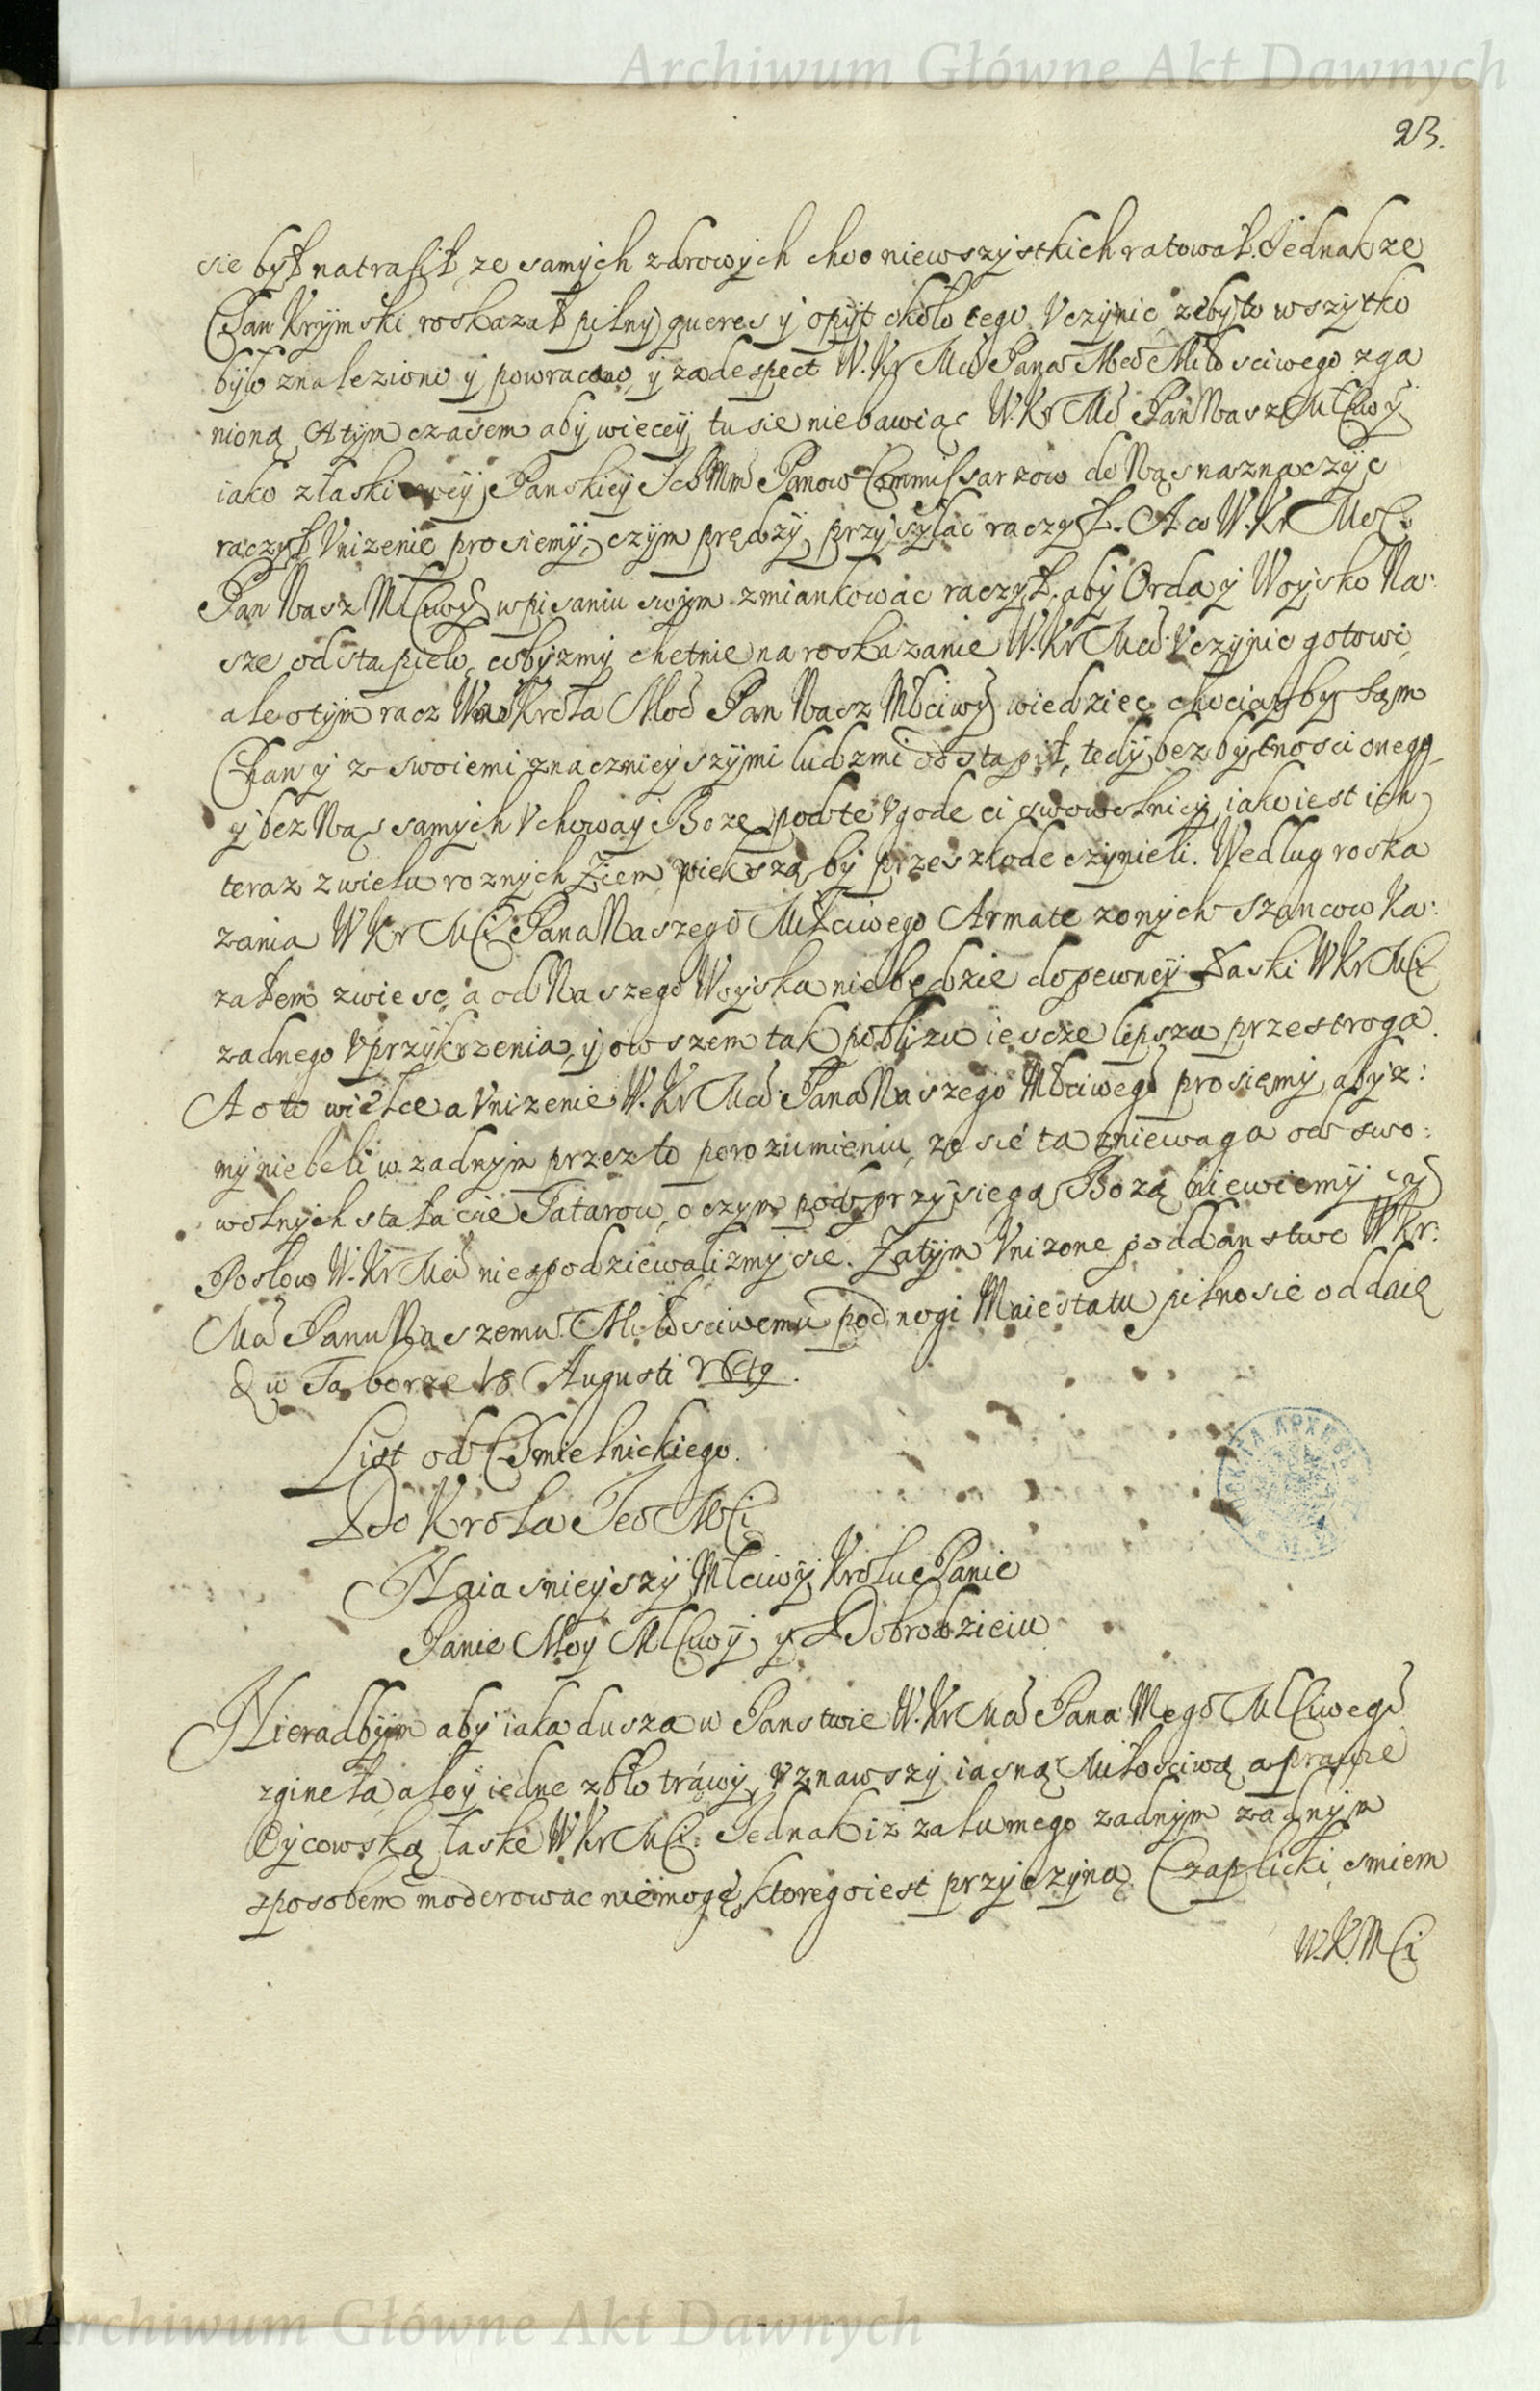 Archiwum Główne Akt Dawnych
23.
sie był natrafił, ze samych zdrowych choc niewszystkich ratował. Jednak ze
Chan Krymski roskazał pilny queres y opyt około tego Vczynic, zeby to wszytko
było znaleziono y powracono, y za despect W. Kr Mci Pana Meo Miłosciwego zga
nioną, A tym czasem aby wiecey tu sie niebawiąc W. Kr Mć Pan Nasz MCiwy
iako z łaski swey Panskiey Ich Mm Panow Commissarzow do Nas naznaczyc
raczył Vnizenie prosiemy, czym prędzy, przysyłac raczył. A co W. Kr MsCi
Pan Nasz MCiwy w pisaniu swym zmiankowac raczył, aby Orda y Woysko Na:
sze odstapieło, cobyzmy chetnie na roskazanie W. Kr Mci Vczynic gotowi
ale o tym racz Krola Mosc Pan Nasz Młciwy wiedziec, chociazby sam
Chan y z swoiemi znacznieyszymi ludzmi odstąpił, tedy bez bytnosci onego
y bez Nas samych Vchoway Boze pod te Vgode ci swowolnicy, iako iest ich
teraz z wielu roznych Ziem, wiekszą by przeszkode czynieli. Wedlug roska
zania W Kr MCi Pana Naszego Miłciwego Armate z onych Szancow Ka:
załem zwiesc, a od Naszego Woyska nie będzie do pewney łaski W Kr MCi
zadnego Vprzykrzenia, y owszem tak poblizu iescze lepsza przestroga.
A o to wielce a Vnizenie W. Kr Mci Pana Naszego Młciwego prosiemy, abyz:
my nie beli w zadnym przez to porozumieniu, ze sie ta zniewaga od swo:
wolnych stała sie Tatarow, o czym pod przysiegą Bozą niewiemy
Posłow W. Kr Mci niespodziewalizmy sie. Zatym Vnizone poddanstwo W Kr:
Mci Panu Naszemu Miłosciwemu pod nogi Maiestatu pilno sie oddaię
w Taborze 18 Augusti 1649.
List od Chmielnickiego.
Do Krola Jeo MCi
Naiasnieyszy Młciwy Krolu Panie
Panie Moy MCiwy, y Dobrodzieiu
Nierad bym aby iaka dusza w Panstwie W. Kr Mci Pana Mego MCiwego
zgineła, ale y iedne zdło trawy, Vznawszy iasną Miłosciwą a prawie
Oycowską łaske W Kr MCi. Jednak iz zalu mego zadnym zadnym
sposobem moderowac niemogę, ktorego iest przyczyną Czaplicki, smiem
W. K. MCi
Archiwum Główne Akt Dawnych